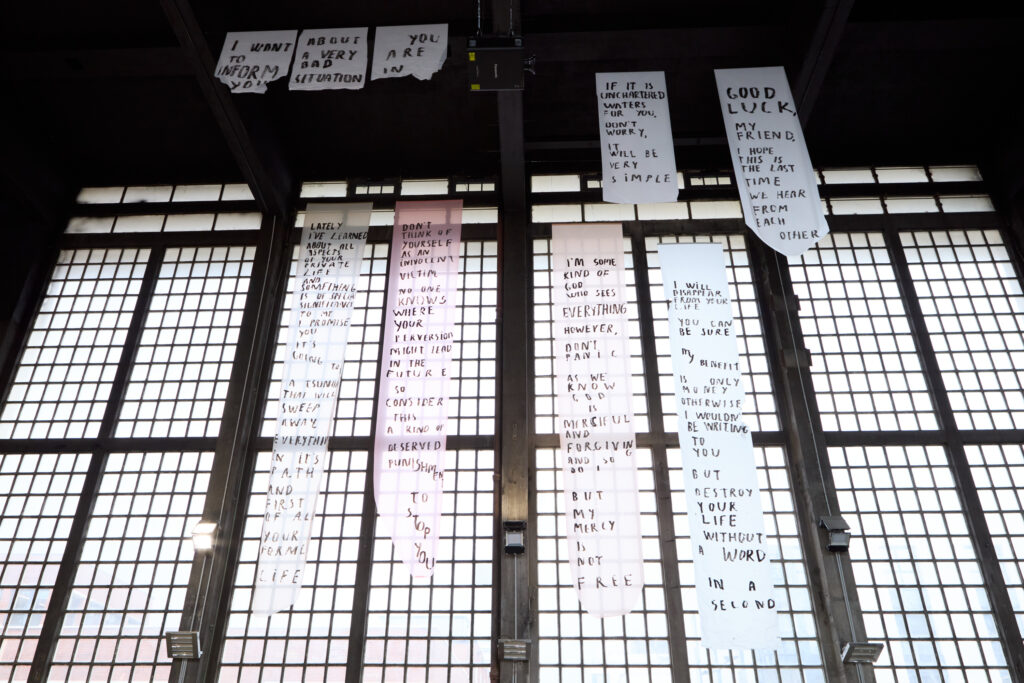 I WANT
TO
INFORM
YOU
ABOUT
A VERY
BAD
SITUATION
YOU
ARE
IN
LATELY
I'VE LEARNED
ABOUT ALL
ASPECTS
OF YOUR
PRIVATE
LIFE
AND
SOMETHING
IS OF SPECIAL
SIGNIFICANCE
TO ME
I PROMISE
YOU
IT'S
GOING TO
A TSUNAMI
THAT WILL
SWEEP
AWAY
EVERYTHING
IN IT'S
PATH
AND
FIRST
OF ALL
YOUR
FORMER
LIFE
DON'T
THINK OF
YOURSELF
AS AN
INNOCENT
VICTIM
NO ONE
KNOWS
WHERE
YOUR
PERVERSION
MIGHT LEAD
IN THE
FUTURE
SO
CONSIDER
THIS
A KIND OF
DESERVED
PUNISHMENT
TO
STOP
YOU
I'M SOME
KIND OF
GOD
WHO SEES
EVERYTHING
HOWEVER,
DON'T
PANIC
AS WE
KNOW
GOD
IS
MERCIFUL
AND
FORGIVING
AND SO
DO I
BUT
MY
MERCY
IS
NOT
FREE
I WILL
DISAPPEAR
FROM YOUR
LIFE
YOU CAN
BE SURE
MY BENEFIT
IS ONLY
MONEY
OTHERWISE
I WOULDN'T
BE WRITING
TO
YOU
BUT
DESTROY
YOUR
LIFE
WITHOUT
A WORD
IN A
SECOND
IF IT IS
UNCHARTERED
WATERS
FOR YOU,
DON'T
WORRY,
IT
WILL BE
VERY
SIMPLE
GOOD
LUCK,
MY
FRIEND,
I HOPE
THIS IS
THE LAST
TIME
WE HEAR
FROM
EACH
OTHER